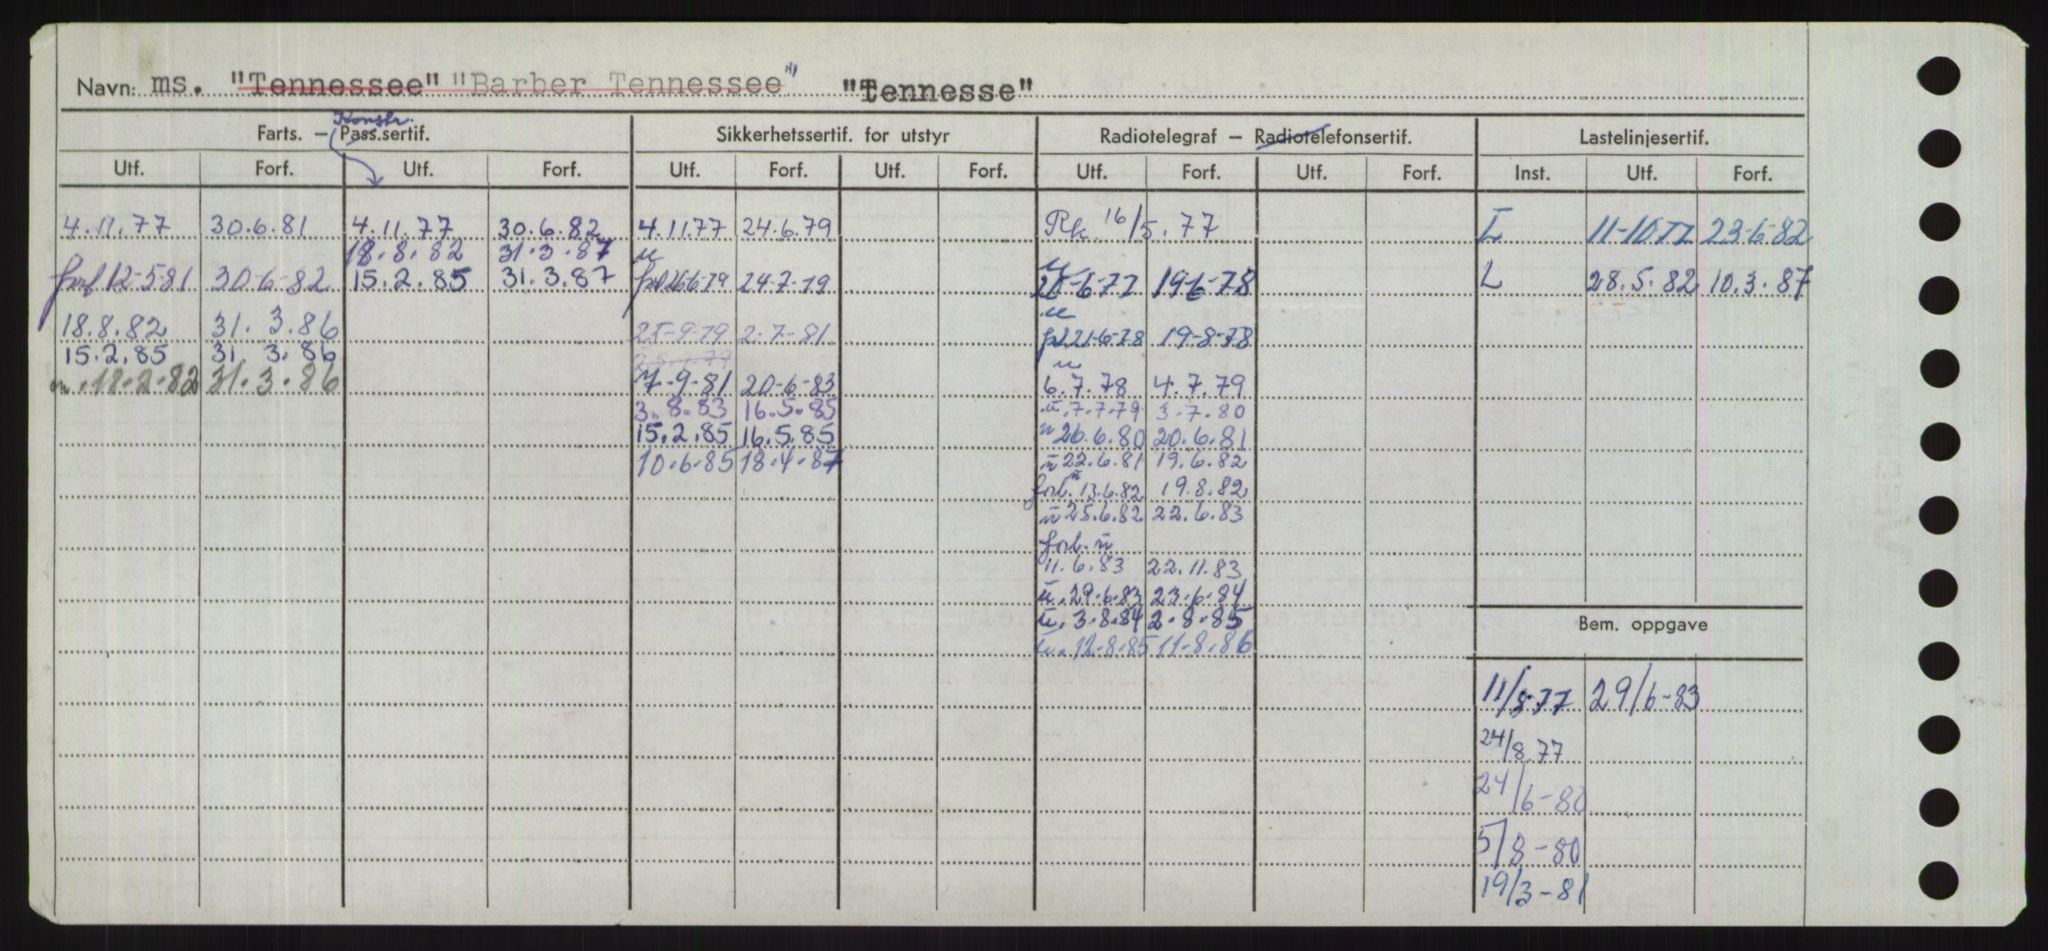 Navn: ms. "Tennessee" "Barber Tennessee" "Tennesse"
Konstr.
Farts. – Pass.sertif. Sikkerhetssertif. for utstyr Radiotelegraf – Radiotelefonsertif. Lastelinjesertif.
Utf. Forf. Utf. Forf. Utf. Forf. Utf. Forf. Utf. Forf. Utf. Forf. Inst. Utf. Forf.
4.11.77 30.6.81 4.11.77 30.6.82 4.11.77 24.6.79 Rk. 16/5.77 I 11-10.77 23-6-82
18.8.82 31.3.87 u
forl 12-5-81 30-6-82 15.2.85 31.3.87 26-6-79 24-7-79 -6-77 19-6-78 L 28.5.82 10.3.87
18.8.82 31.3.86 25-9-79 2-7-81 21-6-78 19-8-78
15.2.85 31.3.86
18-2-82 31.3.86 7-9-81 20-6-83 6.7.78 4.7.79
3.8.83 16.5.85 u. 7.7.79 3.7.80
15.2.85 16.5.85 u 26.6.80 20.6.81
10.6.85 18.4.87 u 22.6.81 19.6.82
forl. u 13.6.82 19.8.82
u 25.6.82 22.6.83
forl. u
11.6.83 22.11.83
u. 29.6.83 23.6.84
u. 3.8.84 2.8.85
Bem. oppgave
u. 12-8-85 11-8.86
11/8-77 29/6-83
24/8.77
24/6-80
5/8-80
19/3-81